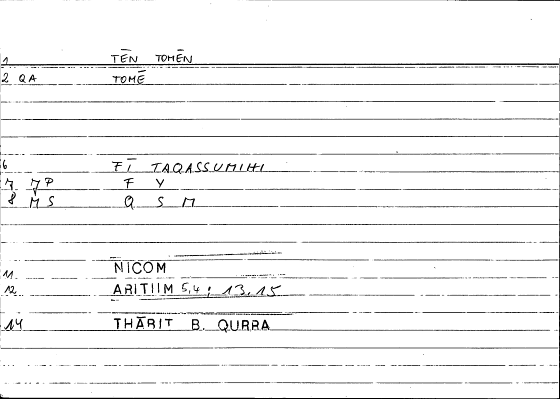 1 TĒN TOMĒN
2 QA TOMĒ
6 FĪ TAQASSUMIHI
7 7P F Y
8 MS Q S M
11 NICOM
12 ARITIIM 5,4; 13,15
14 THĀRIT B. QURRA